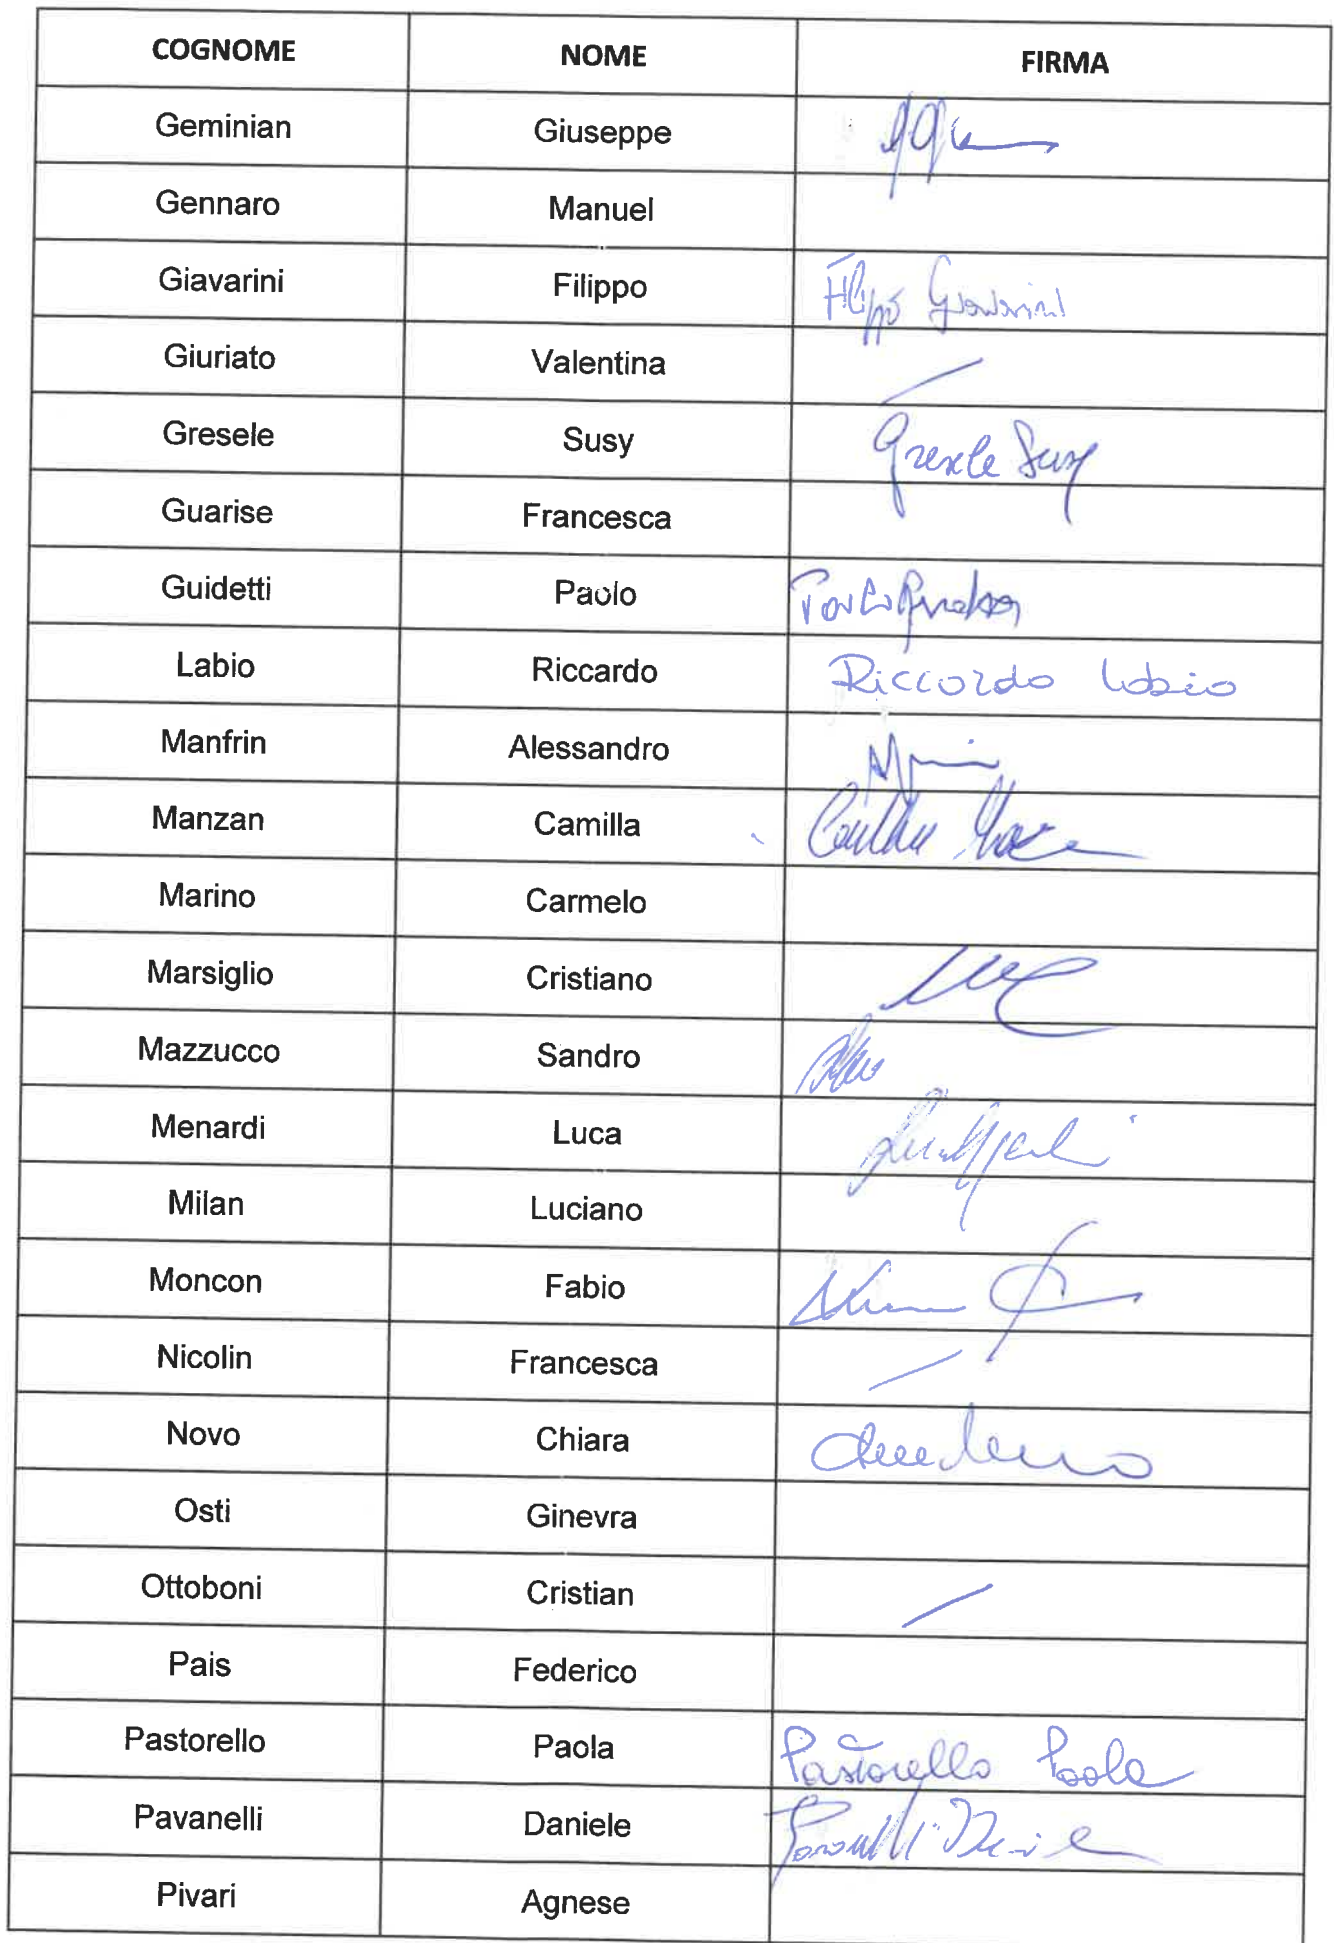 COGNOME NOME FIRMA
Geminian Giuseppe
Gennaro Manuel
Giavarini Filippo Filippo Giavarini
Giuriato Valentina
Gresele Susy Gresele Susy
Guarise Francesca
Guidetti Paolo Paolo Guidetti
Labio Riccardo Riccardo Labio
Manfrin Alessandro
Manzan Camilla Camilla
Marino Carmelo
Marsiglio Cristiano
Mazzucco Sandro
Menardi Luca
Milan Luciano
Moncon Fabio
Nicolin Francesca
Novo Chiara
Osti Ginevra
Ottoboni Cristian
Pais Federico
Pastorello Paola Pastorello Paola
Pavanelli Daniele Pavanelli Daniele
Pivari Agnese